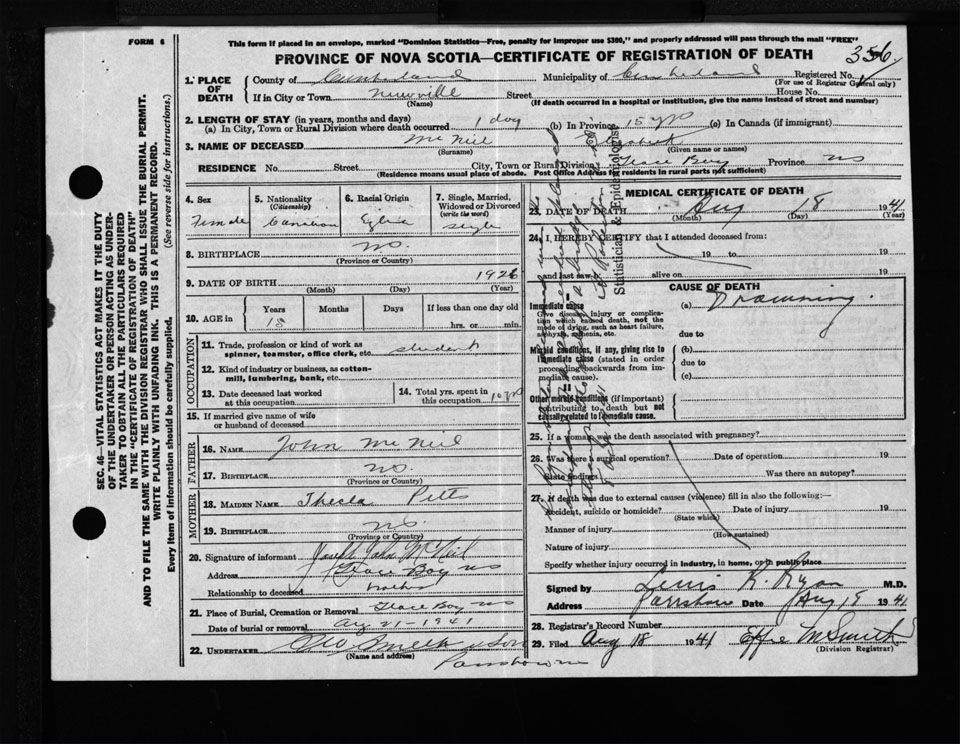 FORM 6
This form if placed in an envelope, marked "Dominion Statistics—Free, penalty for improper use $300," and properly addressed will pass through the mail "FREE"
PROVINCE OF NOVA SCOTIA—CERTIFICATE OF REGISTRATION OF DEATH
356
1. PLACE OF DEATH
County of Cumberland Municipality of Cumberland Registered No.
(For use of Registrar General only)
If in City or Town Newville Street House No.
(Name) (If death occurred in a hospital or institution, give the name instead of street and number)
2. LENGTH OF STAY (in years, months and days)
(a) In City, Town or Rural Division where death occurred 1 day (b) In Province 15 yrs (c) In Canada (if immigrant)
3. NAME OF DECEASED McNeil Elizabeth
(Surname) (Given name or names)
RESIDENCE No. Street City, Town or Rural Division Glace Bay Province NS
(Residence means usual place of abode. Post Office Address for residents in rural parts not sufficient)
4. Sex Female
5. Nationality (Citizenship) Canadian
6. Racial Origin
7. Single, Married, Widowed or Divorced (write the word) Single
8. BIRTHPLACE NS.
(Province or Country)
9. DATE OF BIRTH 1926
(Month) (Day) (Year)
10. AGE in Years 15 Months Days If less than one day old hrs. or min.
OCCUPATION
11. Trade, profession or kind of work as spinner, teamster, office clerk, etc. student
12. Kind of industry or business, as cotton-mill, lumbering, bank, etc.
13. Date deceased last worked at this occupation
14. Total yrs. spent in this occupation 10 yrs
15. If married give name of wife or husband of deceased
FATHER
16. NAME John McNeil
17. BIRTHPLACE NS.
(Province or Country)
MOTHER
18. MAIDEN NAME Thecla Pitts
19. BIRTHPLACE NS.
(Province or Country)
20. Signature of informant Joseph John McNeil
Address Glace Bay NS
Relationship to deceased brother
21. Place of Burial, Cremation or Removal Glace Bay NS
Date of burial or removal Aug 21 - 1941
22. UNDERTAKER & Son
(Name and address)
MEDICAL CERTIFICATE OF DEATH
23. DATE OF DEATH Aug 18 1941
(Month) (Day) (Year)
24. I HEREBY CERTIFY that I attended deceased from:
19 to 19
and last saw alive on 19
CAUSE OF DEATH
Immediate cause
Give disease, injury or complication which caused death, not the mode of dying, such as heart failure, asphyxia, asthenia, etc.
(a) Drowning.
due to
Morbid conditions, if any, giving rise to immediate cause (stated in order proceeding backwards from immediate cause).
(b)
due to
(c)
Other morbid conditions (if important) contributing to death but not causally related to immediate cause.
25. If a woman, was the death associated with pregnancy?
26. Was there a surgical operation? Date of operation 19
State findings Was there an autopsy?
27. If death was due to external causes (violence) fill in also the following:—
Accident, suicide or homicide? Date of injury 19
(State which)
Manner of injury
(How sustained)
Nature of injury
Specify whether injury occurred in industry, in home, or in public place
Signed by Lewis K. Ryan M.D.
Address Parrsboro Date Aug 19 1941
28. Registrar's Record Number
29. Filed Aug 18 1941 Effie M Smith
(Division Registrar)
Statistician & Epidemiologist
SEC. 46—VITAL STATISTICS ACT MAKES IT THE DUTY
OF THE UNDERTAKER OR PERSON ACTING AS UNDER-
TAKER TO OBTAIN ALL THE PARTICULARS REQUIRED
IN THE "CERTIFICATE OF REGISTRATION OF DEATH"
AND TO FILE THE SAME WITH THE DIVISION REGISTRAR WHO SHALL ISSUE THE BURIAL PERMIT.
WRITE PLAINLY WITH UNFADING INK. THIS IS A PERMANENT RECORD.
Every item of information should be carefully supplied. (See reverse side for instructions.)